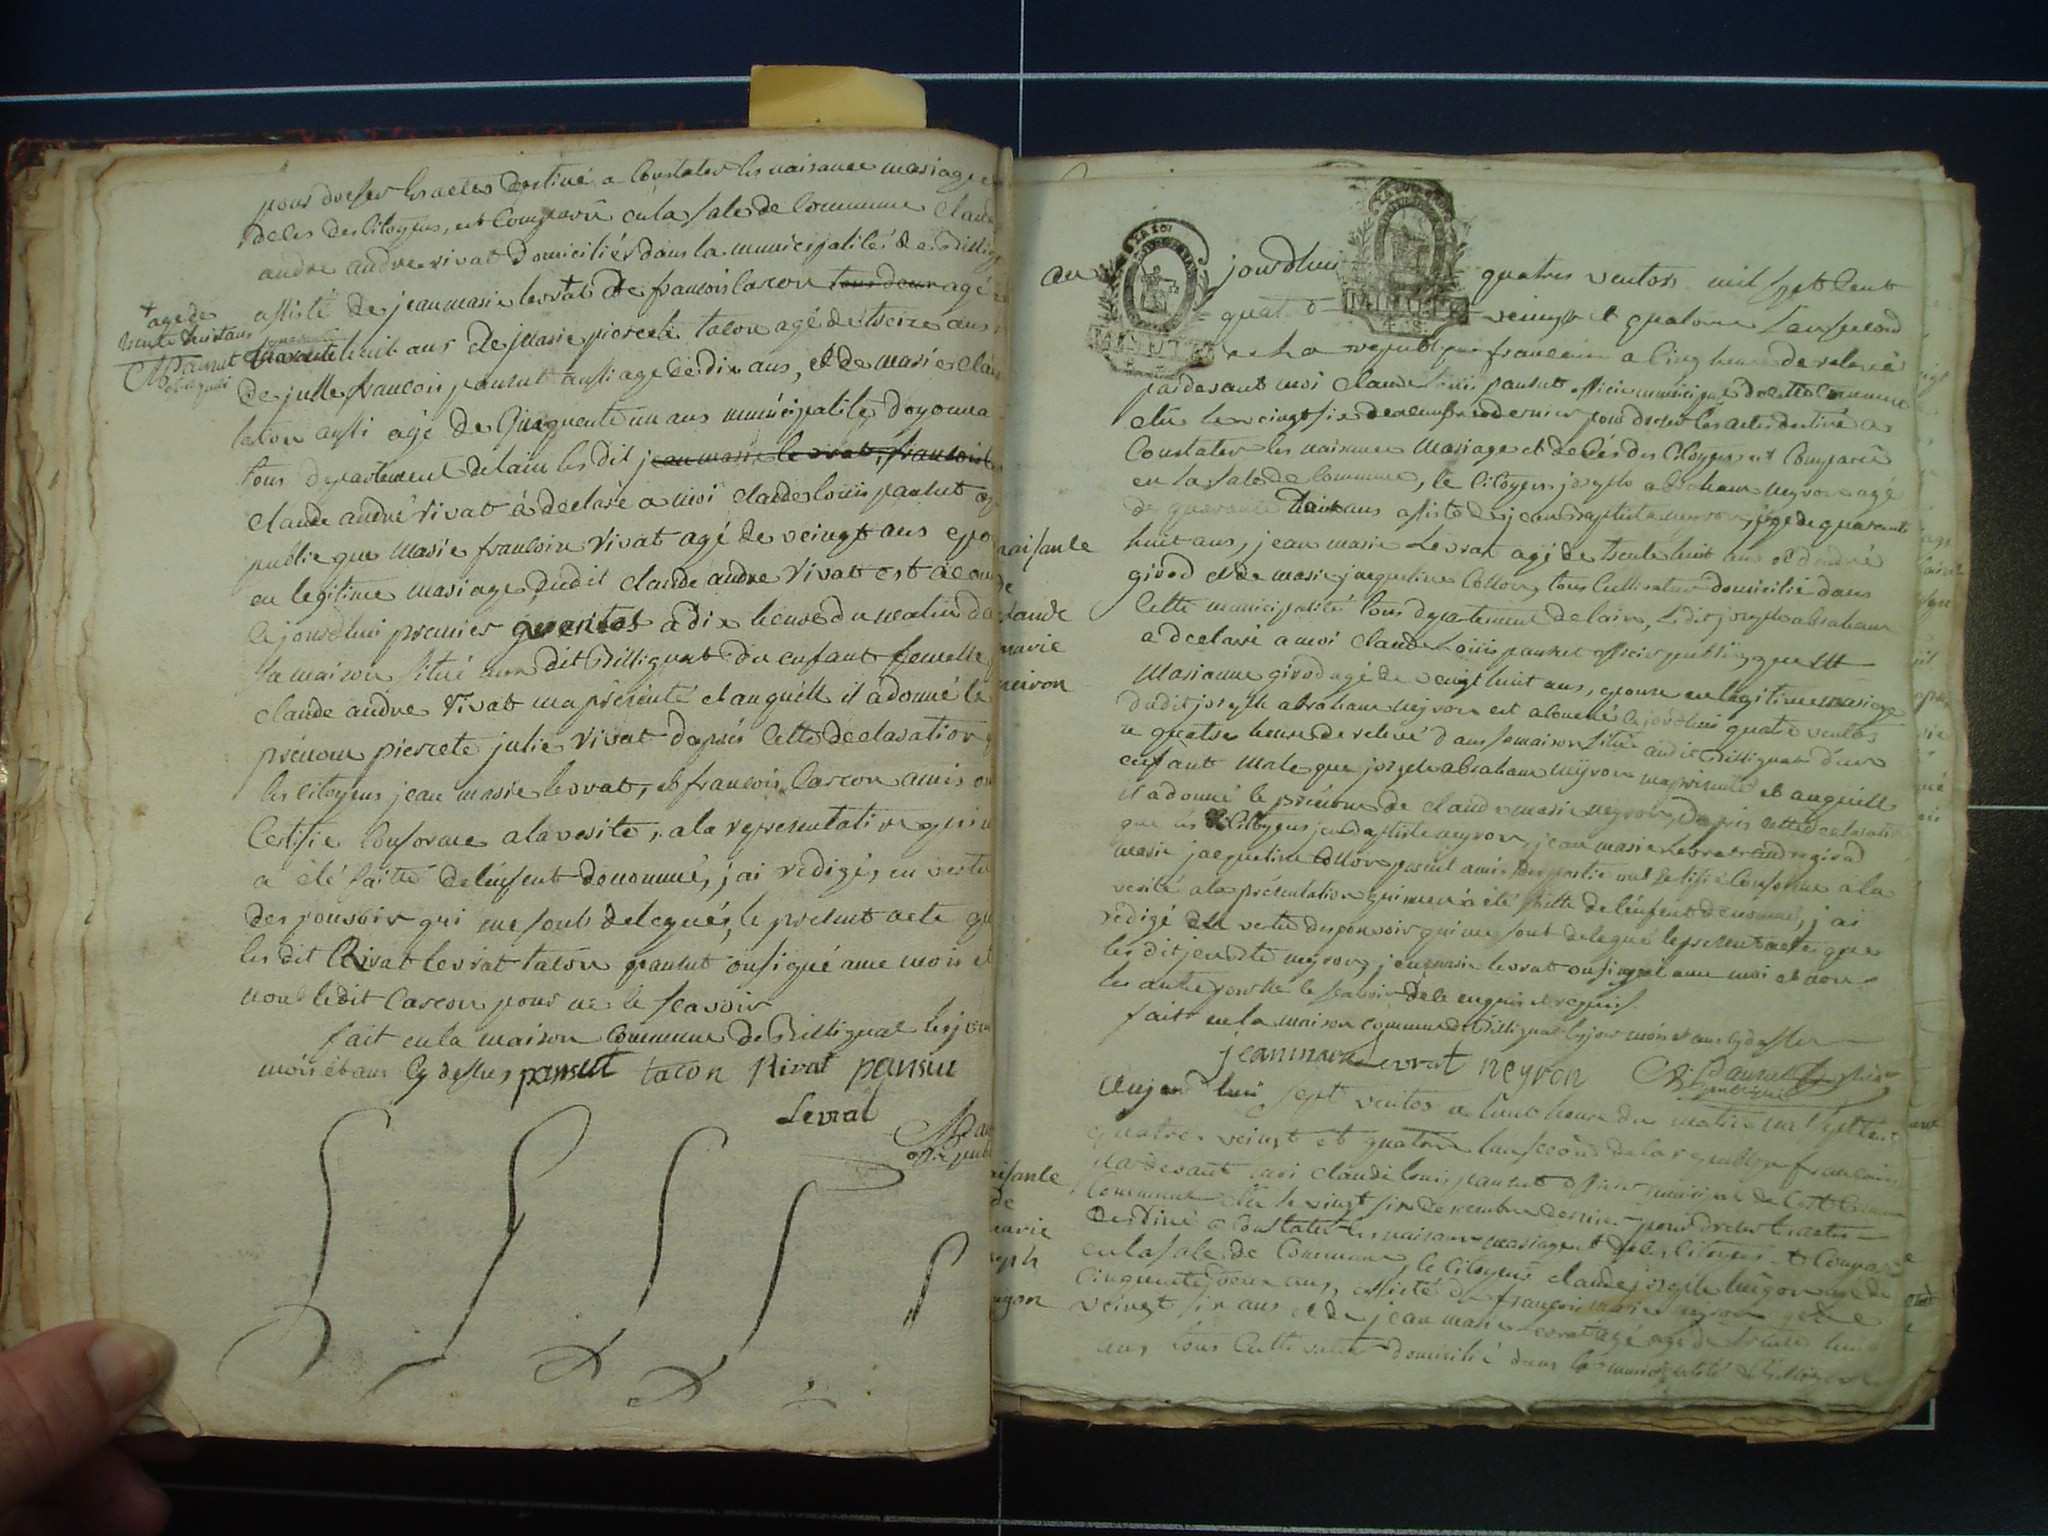 pour dresser les actes destiné a Constater les naisance mariage et
deces des Citoyens, est Comparu en la sale de Commune Claude
andre andre rivat domiciliér dans la municipalité de Billig
assisté de jean marie levrat de francois lascon tous deux agé
+ agé de trente huit ans
huit ans de marie pierrete tacon agé de treize ans
de juste francois pansut aussi agé de dix ans, et de marie
tacon aussi agé de Cinquante un ans municipalité doyonna
tous departement de lain les dit jean marie levrat, francois
claude andre rivat à declaré a moi claude louis pansut
public que marie francoise rivat agé de veingt ans epou
en legitime mariage dudit claude andre rivat est acou
ce jourdhui premier ventos a dix heure du matin da
sa maison situé au dit Billignat du enfant femelle
claude andre rivat ma présenté et auquelle il a donné le
prénom pierrete julie rivat daprés cette declaration
les citoyens jean marie levrat, et francois lascon amis on
Certifie Conforme a la verité, a la representation qui m
a été faitte de lenfent dénommé, j'ai redigés en vertu
des pouvoir qui me sont delegués le present acte que
les dit Rivat levrat tacon pansut on signé avec moi et
non ledit lascon pour ne le scavoir
fait en la maison Commune de Billignat les jour
mois et ans cy dessus pansut tacon Rivat pansut
Levrat
off. publ
naisance
de
claude
marie
neiron
aujourdhui quatres ventos mil sept Cent
quatre veingt et quatorze lan second
de la republique francaise a Cinq heure de relevé
pardevant moi Claude Louis pansut officier municipal de cette Commune
elu le veingt six decembre dernier pour dresser les actes destiné a
Constater les naisance Mariage et decés des Citoyens est Comparu
en la sale de Commune, le Citoyen joseph abraham neyron agé
de quarante huit ans assisté de jean baptiste neyron, agé de quarante
huit ans, jean marie Levrat agé de trente huit ans et dandré
girod et de marie jacqueline Collon, tous Cultivateur domicilié dans
Cette municipalité tous departement de lain, Ledit joseph abraham
a declaré a moi Claude Louis pansut officier public, que
Marianne girod agé de veingt huit ans, epouse en legitime mariage
dudit joseph abraham neyron est acouché ce jourdhui quatre ventos
a quatre heure de relevé dans sa maison située audit Billignat d'un
enfant male que joseph abraham neyron ma présenté et auquelle
il a donné le prénom de claude marie neyron, Daprés cette declaration
que les Citoyens jean baptiste neyron, jean marie levrat andre girod
marie jacqueline Collon parent amis des partie ont Certifié Conforme a la
verité a la présentation qui men a été faitte de lenfent denommé, j ai
redigé en vertu des pouvoir qui me sont delegué le present acte que
les dit jean bte neyron, jean marie levrat on signé avec moi et non
les autre pour ne le scavoir de ce enquis et requis.
fait en la maison commune de Billignat les jour mois et ans cy dessus
jean marie Levrat neyron
naisance
de
marie
joseph
Aujourdhui sept ventos a huit heure du matin mil sept cent
quatre veingt et quatorze lan second de la republique francaise
pardevant moi claude louis pansut officier municipal de Cette Com
Commune élu le veingt six decembre dernier pour dresser les actes
destiné a Constater les naisance mariage et deces des Citoyens est Compa
en la sale de Commune, le Citoyens claude joseph hugon agé de
Cinquante deux ans, assisté de francois marie neyron agé de
veingt six ans et de jean marie levrat agé agé de trente huit
ans tous Cultivateur domicilié dans la municipalité de Billignat